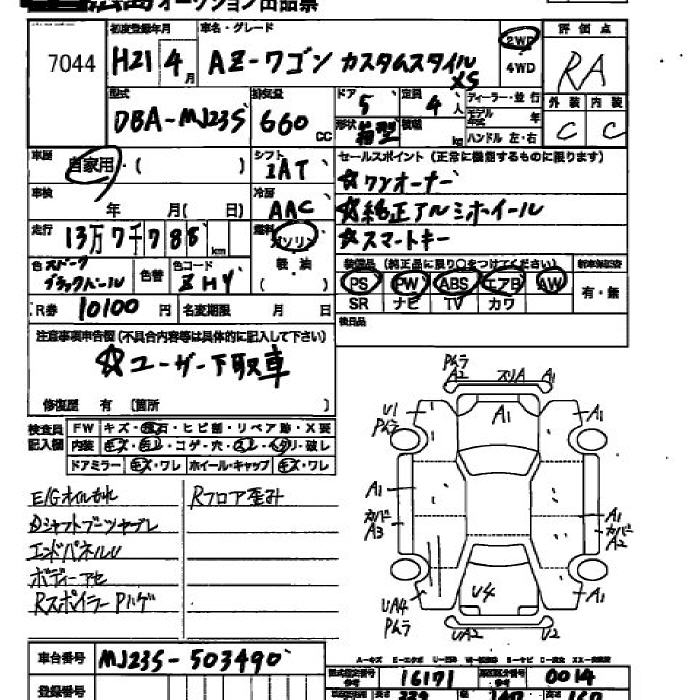 オークション出品票
7044
初度登録年月
H21 4月
車名・グレード
AZ-ワゴン カスタムスタイル
XS
2WD
4WD
評価点
RA
外装 内装
C C
型式
DBA-MJ23S
排気量
660 CC
ドア 5
定員 4人
形状 箱型
積載 kg
ディーラー・並行
モデル年式 年
ハンドル 左・右
車歴
自家用・( )
シフト
IAT
車検
年 月( 日)
冷房
AAC
走行
13万7千788 km
燃料
ガソリン
軽油
( )
色 スパーク
ブラックパール
色替
色コード
ZHY
R券 10100 円
名変期限 月 日
セールスポイント(正常に機能するものに限ります)
☆ワンオーナー
☆純正アルミホイール
☆スマートキー
装備品(純正品に限り○をつけてください)
PS PW ABS エアB AW
SR ナビ TV カワ
新車保証書
有・無
後日品
注意事項申告欄(不具合内容等は具体的に記入して下さい)
☆ユーザー下取車
修復歴 有(箇所 )
検査員
記入欄
FW キズ・飛石・ヒビ割・リペア跡・X要
内装 キズ・汚レ・コゲ・穴・スレ・ヘタリ・破レ
ドアミラー キズ・ワレ ホイール・キャップ キズ・ワレ
E/Gオイルもれ
Dシャフトブーツヤブレ
エンドパネルU
ボディーアセ
RスポイラーPハゲ
Rフロア歪み
Pムラ
A2 スリA A1
U1
Pムラ
A1
A1
A1
カバー
A3
A1
カバー
A2
UA4
Pムラ
U4
A1
UA2
U2
車台番号 MJ23S-503490
型式指定番号 16171
類別区分番号 0014
登録番号
長さ 339